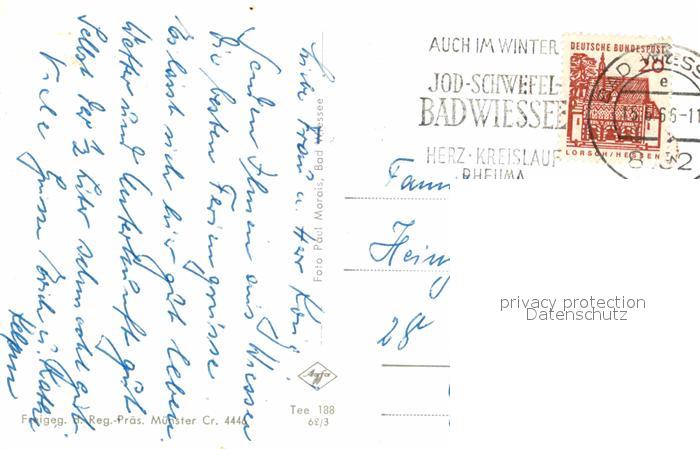 Liebe Frau u. Herr König
Senden Ihnen aus Wiessee
die besten Feriengrüsse.
Es lässt sich hier gut leben.
Wetter und Unterkunft gut
Selbst der ½ Liter schmeckt gut.
Viele Grüsse Erich u. Käthe
Foto Paul Morais, Bad Wiessee
Agfa
Tee 188
62/3
Freigeg. d. Reg.-Präs. Münster Cr. 4446
AUCH IM WINTER
JOD-SCHWEFEL-
BAD WIESSEE
HERZ·KREISLAUF
RHEUMA
DEUTSCHE BUNDESPOST
20
LORSCH/HESSEN
BAD WIESSEE
e
66-11
8182
Fam
Hein
28
privacy protection
Datenschutz